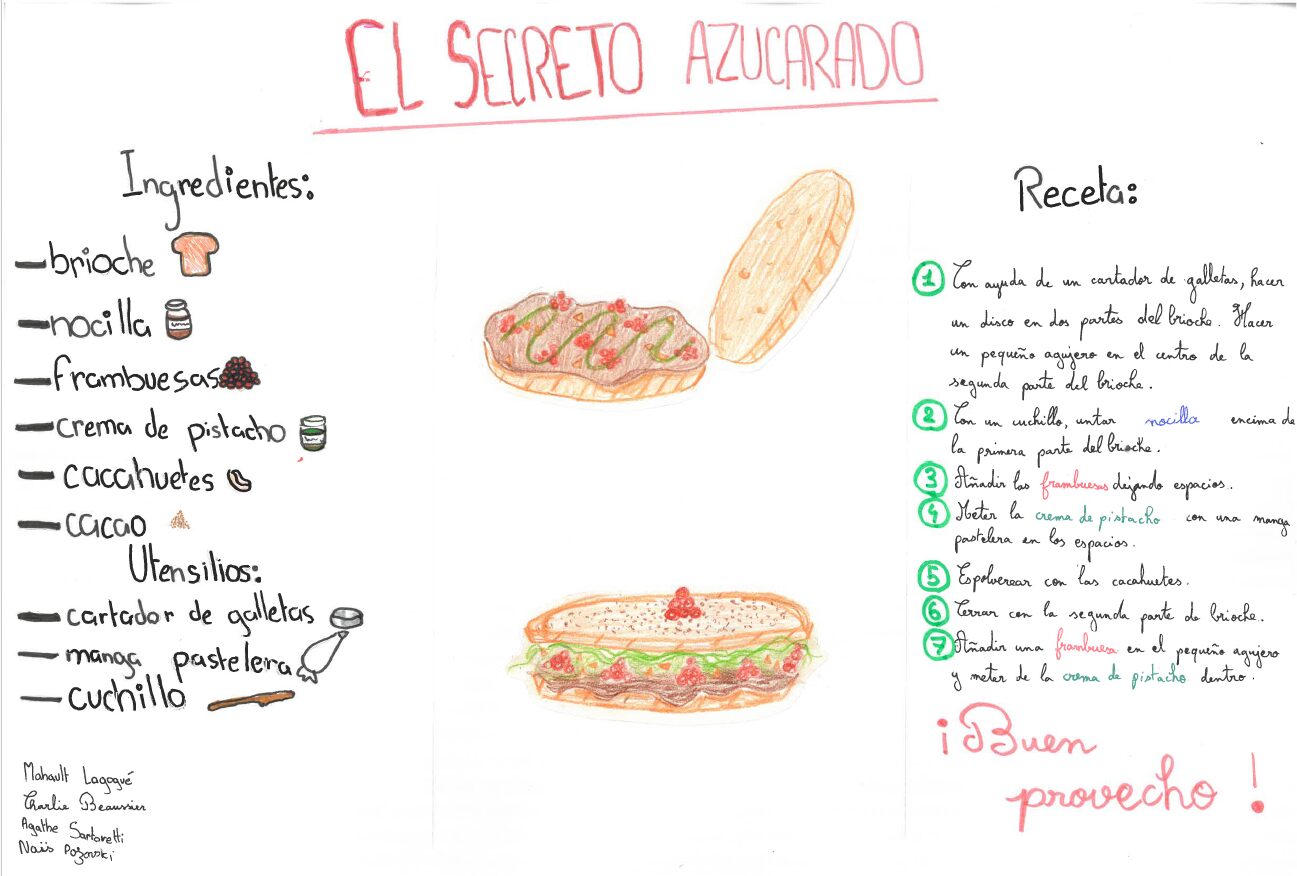 EL SECRETO AZUCARADO
Ingredientes:
- brioche
- nocilla
- frambuesas
- crema de pistacho
- cacahuetes
- cacao
Utensilios:
- cartador de galletas
- manga pastelera
- cuchillo
Mahault Lagogué
Charlie Beaussier
Agathe Sartoretti
Naïs Pozorski
Receta:
1 Con ayuda de un cartador de galletas, hacer
un disco en dos partes del brioche. Hacer
un pequeño agujero en el centro de la
segunda parte del brioche.
2 Con un cuchillo, untar nocilla encima de
la primera parte del brioche.
3 Añadir las frambuesas dejando espacios.
4 Meter la crema de pistacho con una manga
pastelera en los espacios.
5 Espolverear con las cacahuetes.
6 Cerrar con la segunda parte de brioche.
7 Añadir una frambuesa en el pequeño agujero
y meter de la crema de pistacho dentro.
¡Buen
provecho!